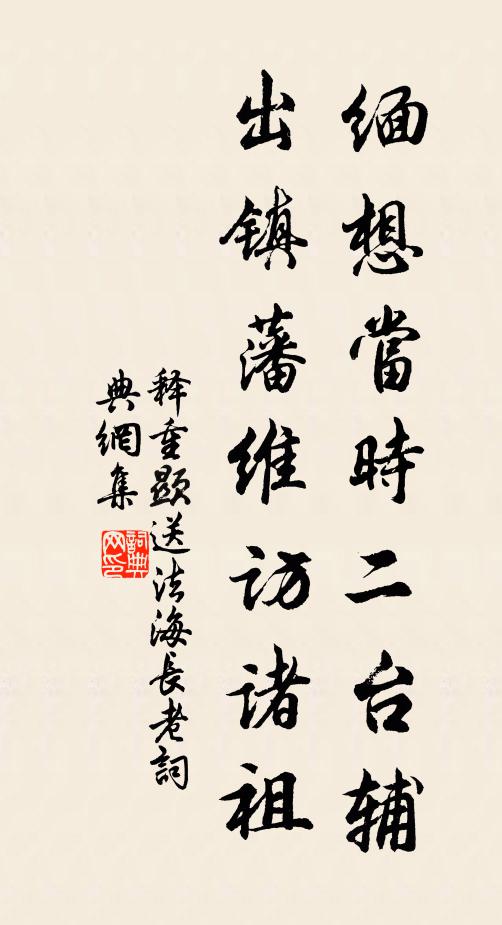 缅想當時二台辅
出镇藩维访诸祖
释重顯送法海長老詞
典網集
詞典网印